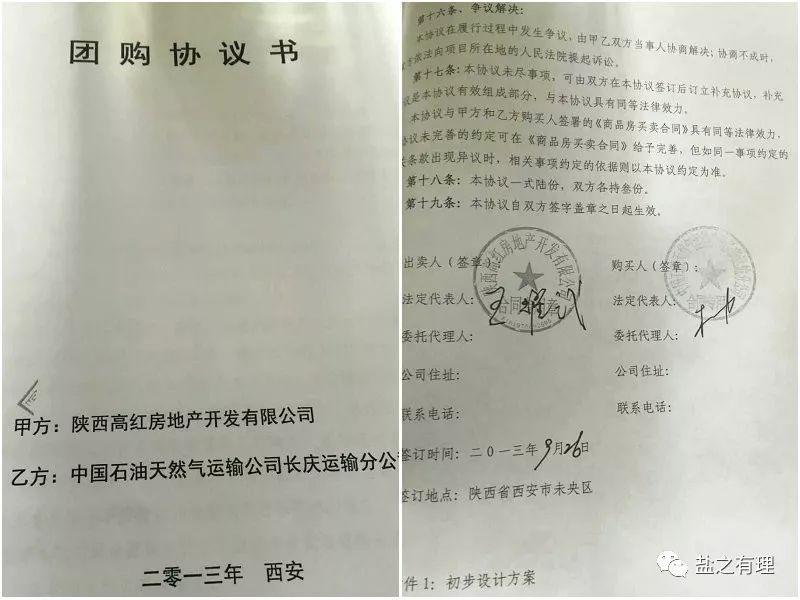 团购协议书
甲方：陕西高红房地产开发有限公司
乙方：中国石油天然气运输公司长庆运输分公
二零一三年 西安
第十六条、争议解决：
本协议在履行过程中发生争议，由甲乙双方当事人协商解决；协商不成时，
依法向项目所在地的人民法院提起诉讼。
第十七条：本协议未尽事项，可由双方在本协议签订后订立补充协议，补充
议是本协议有效组成部分，与本协议具有同等法律效力。
本协议与甲方和乙方购买人签署的《商品房买卖合同》具有同等法律效力，
协议未完善的约定可在《商品房买卖合同》给予完善，但如同一事项约定的
条款出现异议时，相关事项约定的依据则以本协议约定为准。
第十八条：本协议一式陆份，双方各持叁份。
第十九条：本协议自双方签字盖章之日起生效。
出卖人（签章）：
购买人（签章）：
陕西高红房地产开发有限公司
合同专用章
法定代表人：
法定代表人：
委托代理人：
委托代理人：
公司住址：
公司住址：
联系电话：
联系电话：
签订时间：二0一三年9月26日
签订地点：陕西省西安市未央区
件1：初步设计方案
盐之有理